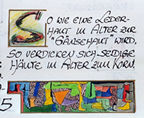 SO WIE EINE LEDER-
HAUT IM ALTER ZUR
"GÄNSEHAUT" WIRD,
SO VERDICKEN SICH SEIDIGE
HÄUTE IM ALTER ZUM KORN.
5